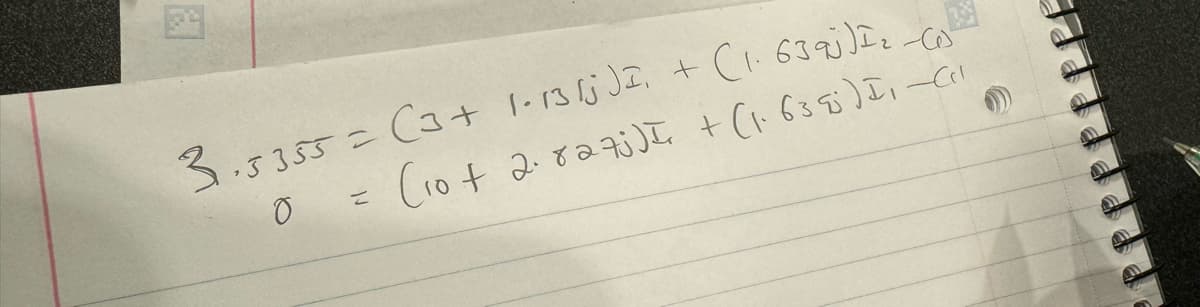 3.5355 = (3 + 1.131j)I₁ + (1.639j)I₂ —(1)
0 = (10 + 2.827j)I₂ + (1.639j)I₁ —(1)